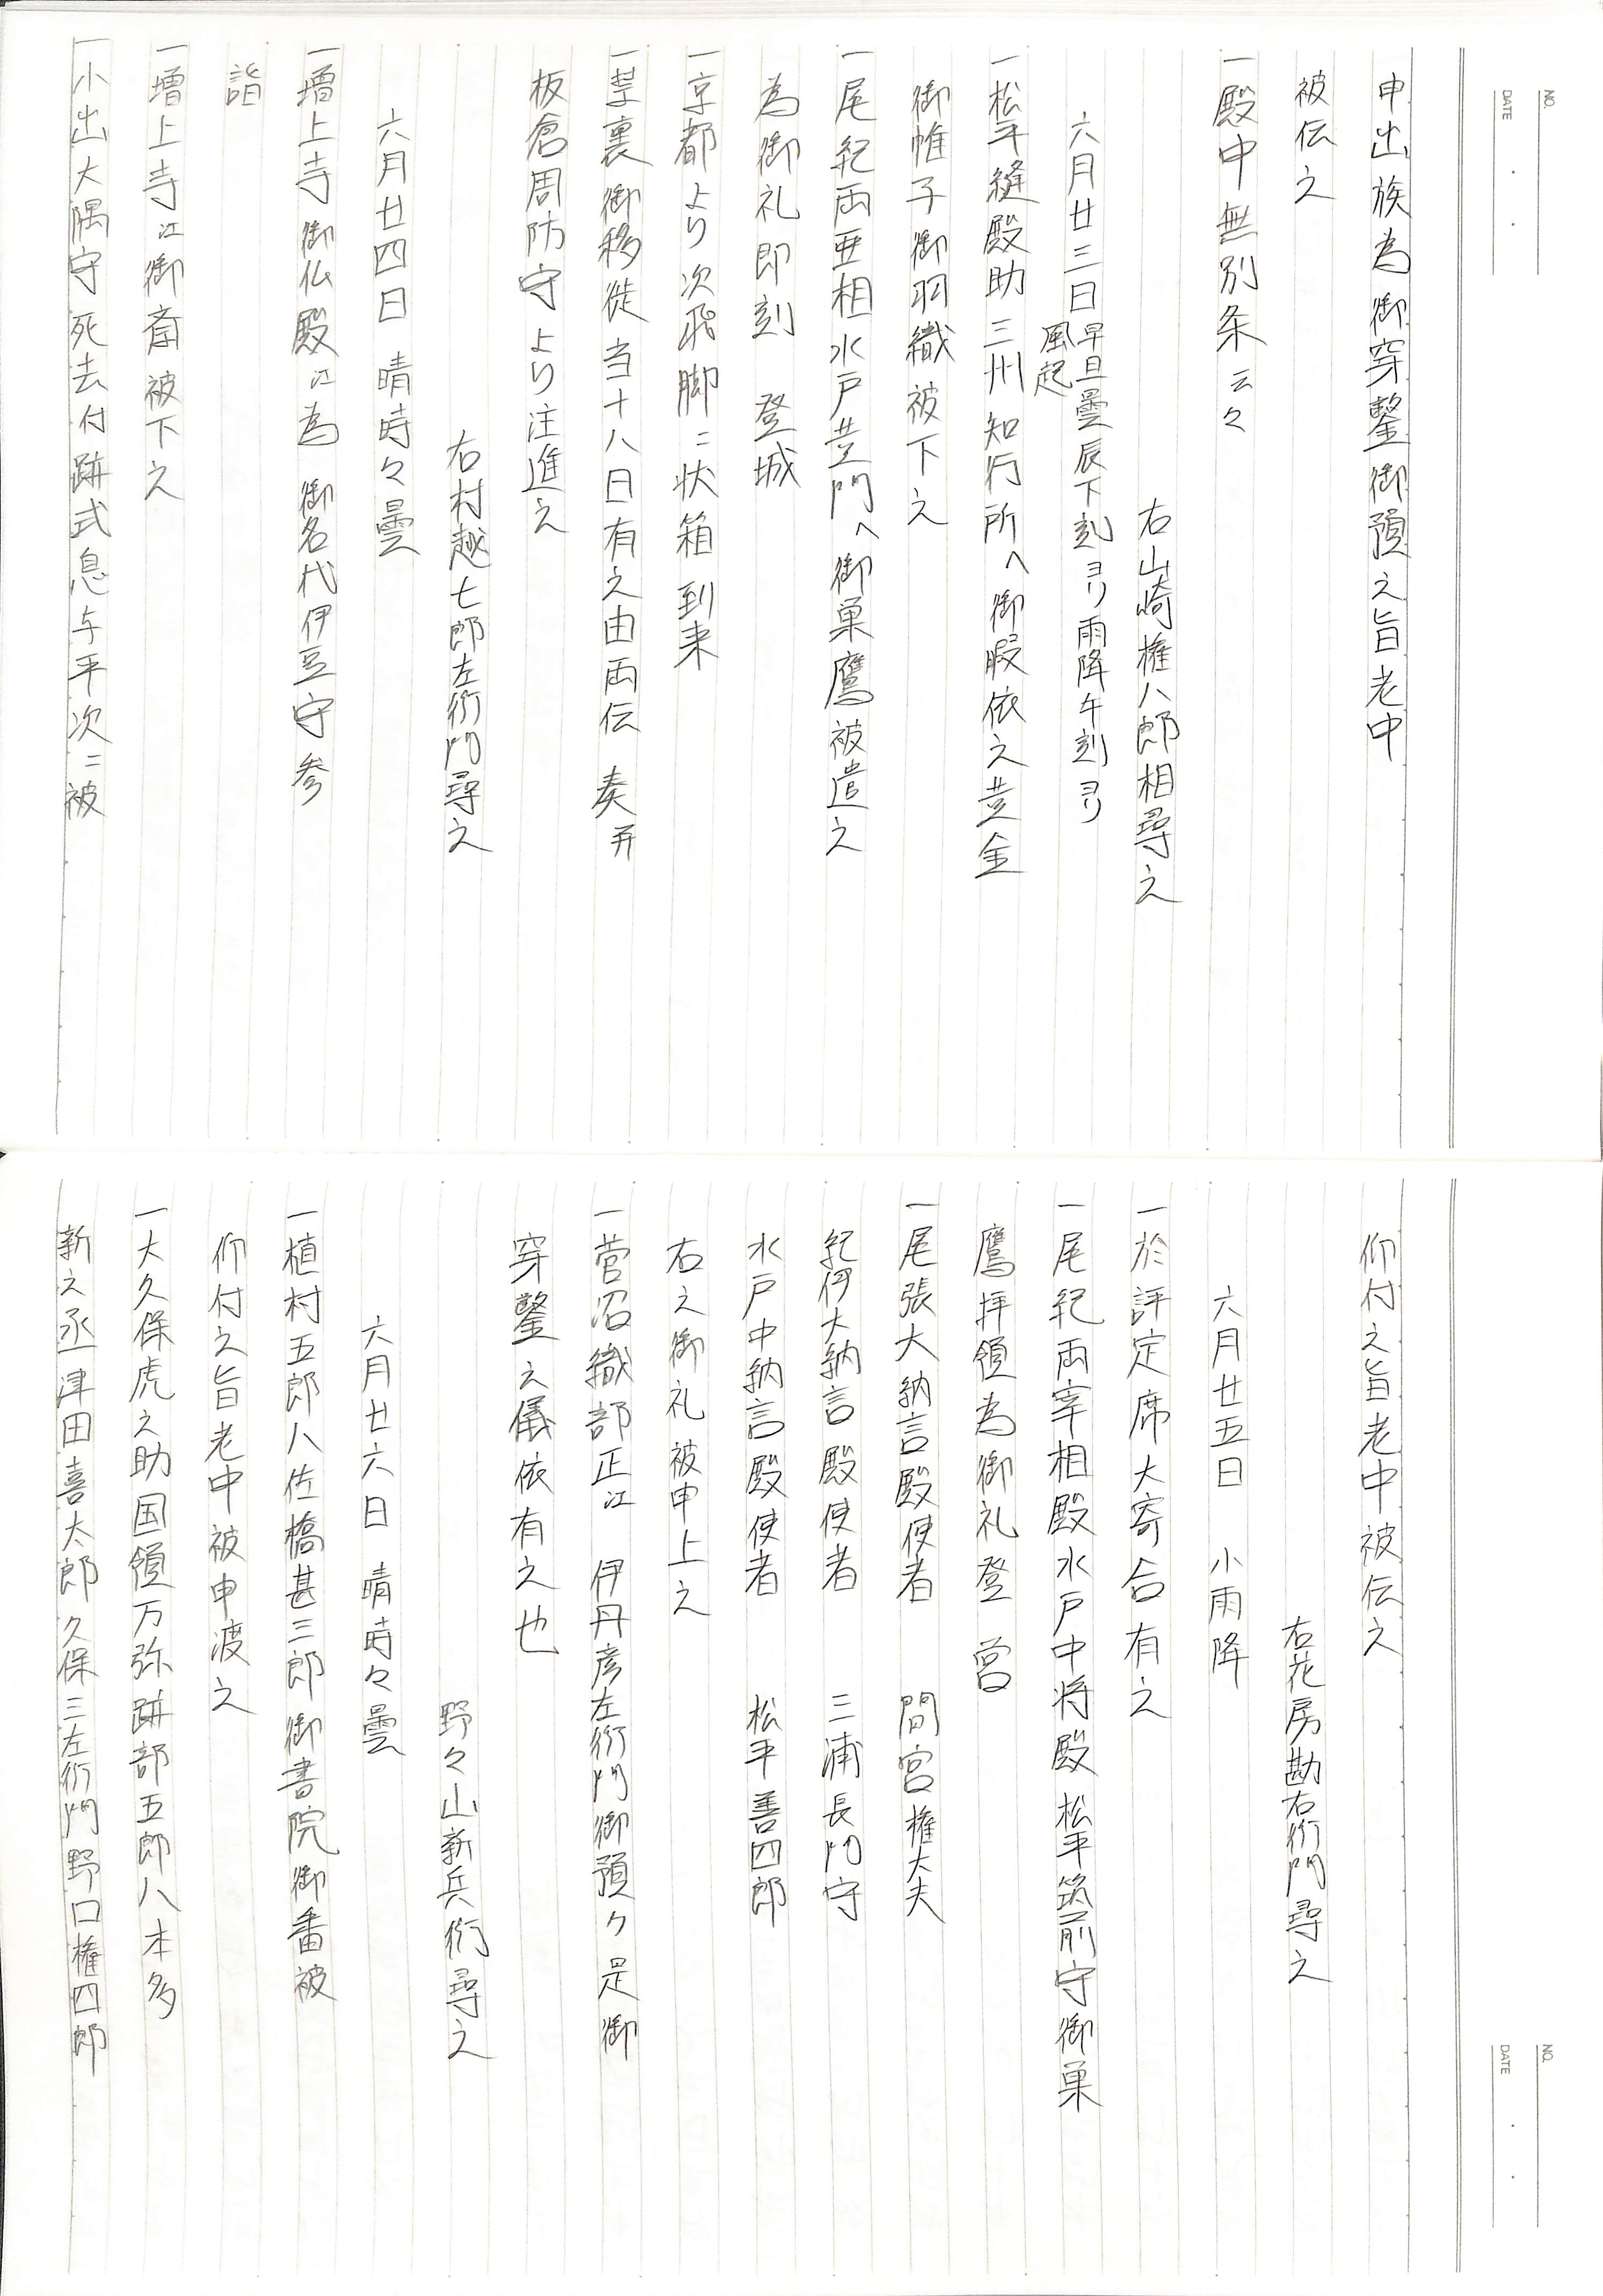 NO.
DATE
申出族為御穿鑿御預之旨老中
被伝之
一殿中無別条云々
右山崎権八郎相尋之
六月廿三日早旦曇辰下刻ヨリ雨降午刻ヨリ
風起
一松平縫殿助三州知行所へ御暇依之黄金
御帷子御羽織被下之
一尾紀両亜相水戸黄門へ御巣鷹被遣之
為御礼即刻 登城
一京都より次飛脚ニ状箱到来
一禁裏御移徙当十八日有之由両伝 奏并
板倉周防守より注進之
右村越七郎左衛門尋之
六月廿四日 晴時々曇
一増上寺御仏殿江為 御名代伊豆守参
詣
一増上寺江御斎被下之
一小出大隅守死去付跡式息与平次ニ被
NO.
DATE
仰付之旨老中被伝之
右花房勘右衛門尋之
六月廿五日 小雨降
一於評定席大寄合有之
一尾紀両宰相殿水戸中将殿松平筑前守御巣
鷹拝領為御礼登 営
一尾張大納言殿使者 間宮権大夫
紀伊大納言殿使者 三浦長門守
水戸中納言殿使者 松平善四郎
右之御礼被申上之
一菅沼織部正江 伊丹彦左衛門御預ケ是御
穿鑿之儀依有之也
野々山新兵衛尋之
六月廿六日 晴時々曇
一植村五郎八佐橋甚三郎御書院御番被
仰付之旨老中被申渡之
一大久保虎之助国領万弥跡部五郎八本多
新之丞津田喜太郎久保三左衛門野口権四郎